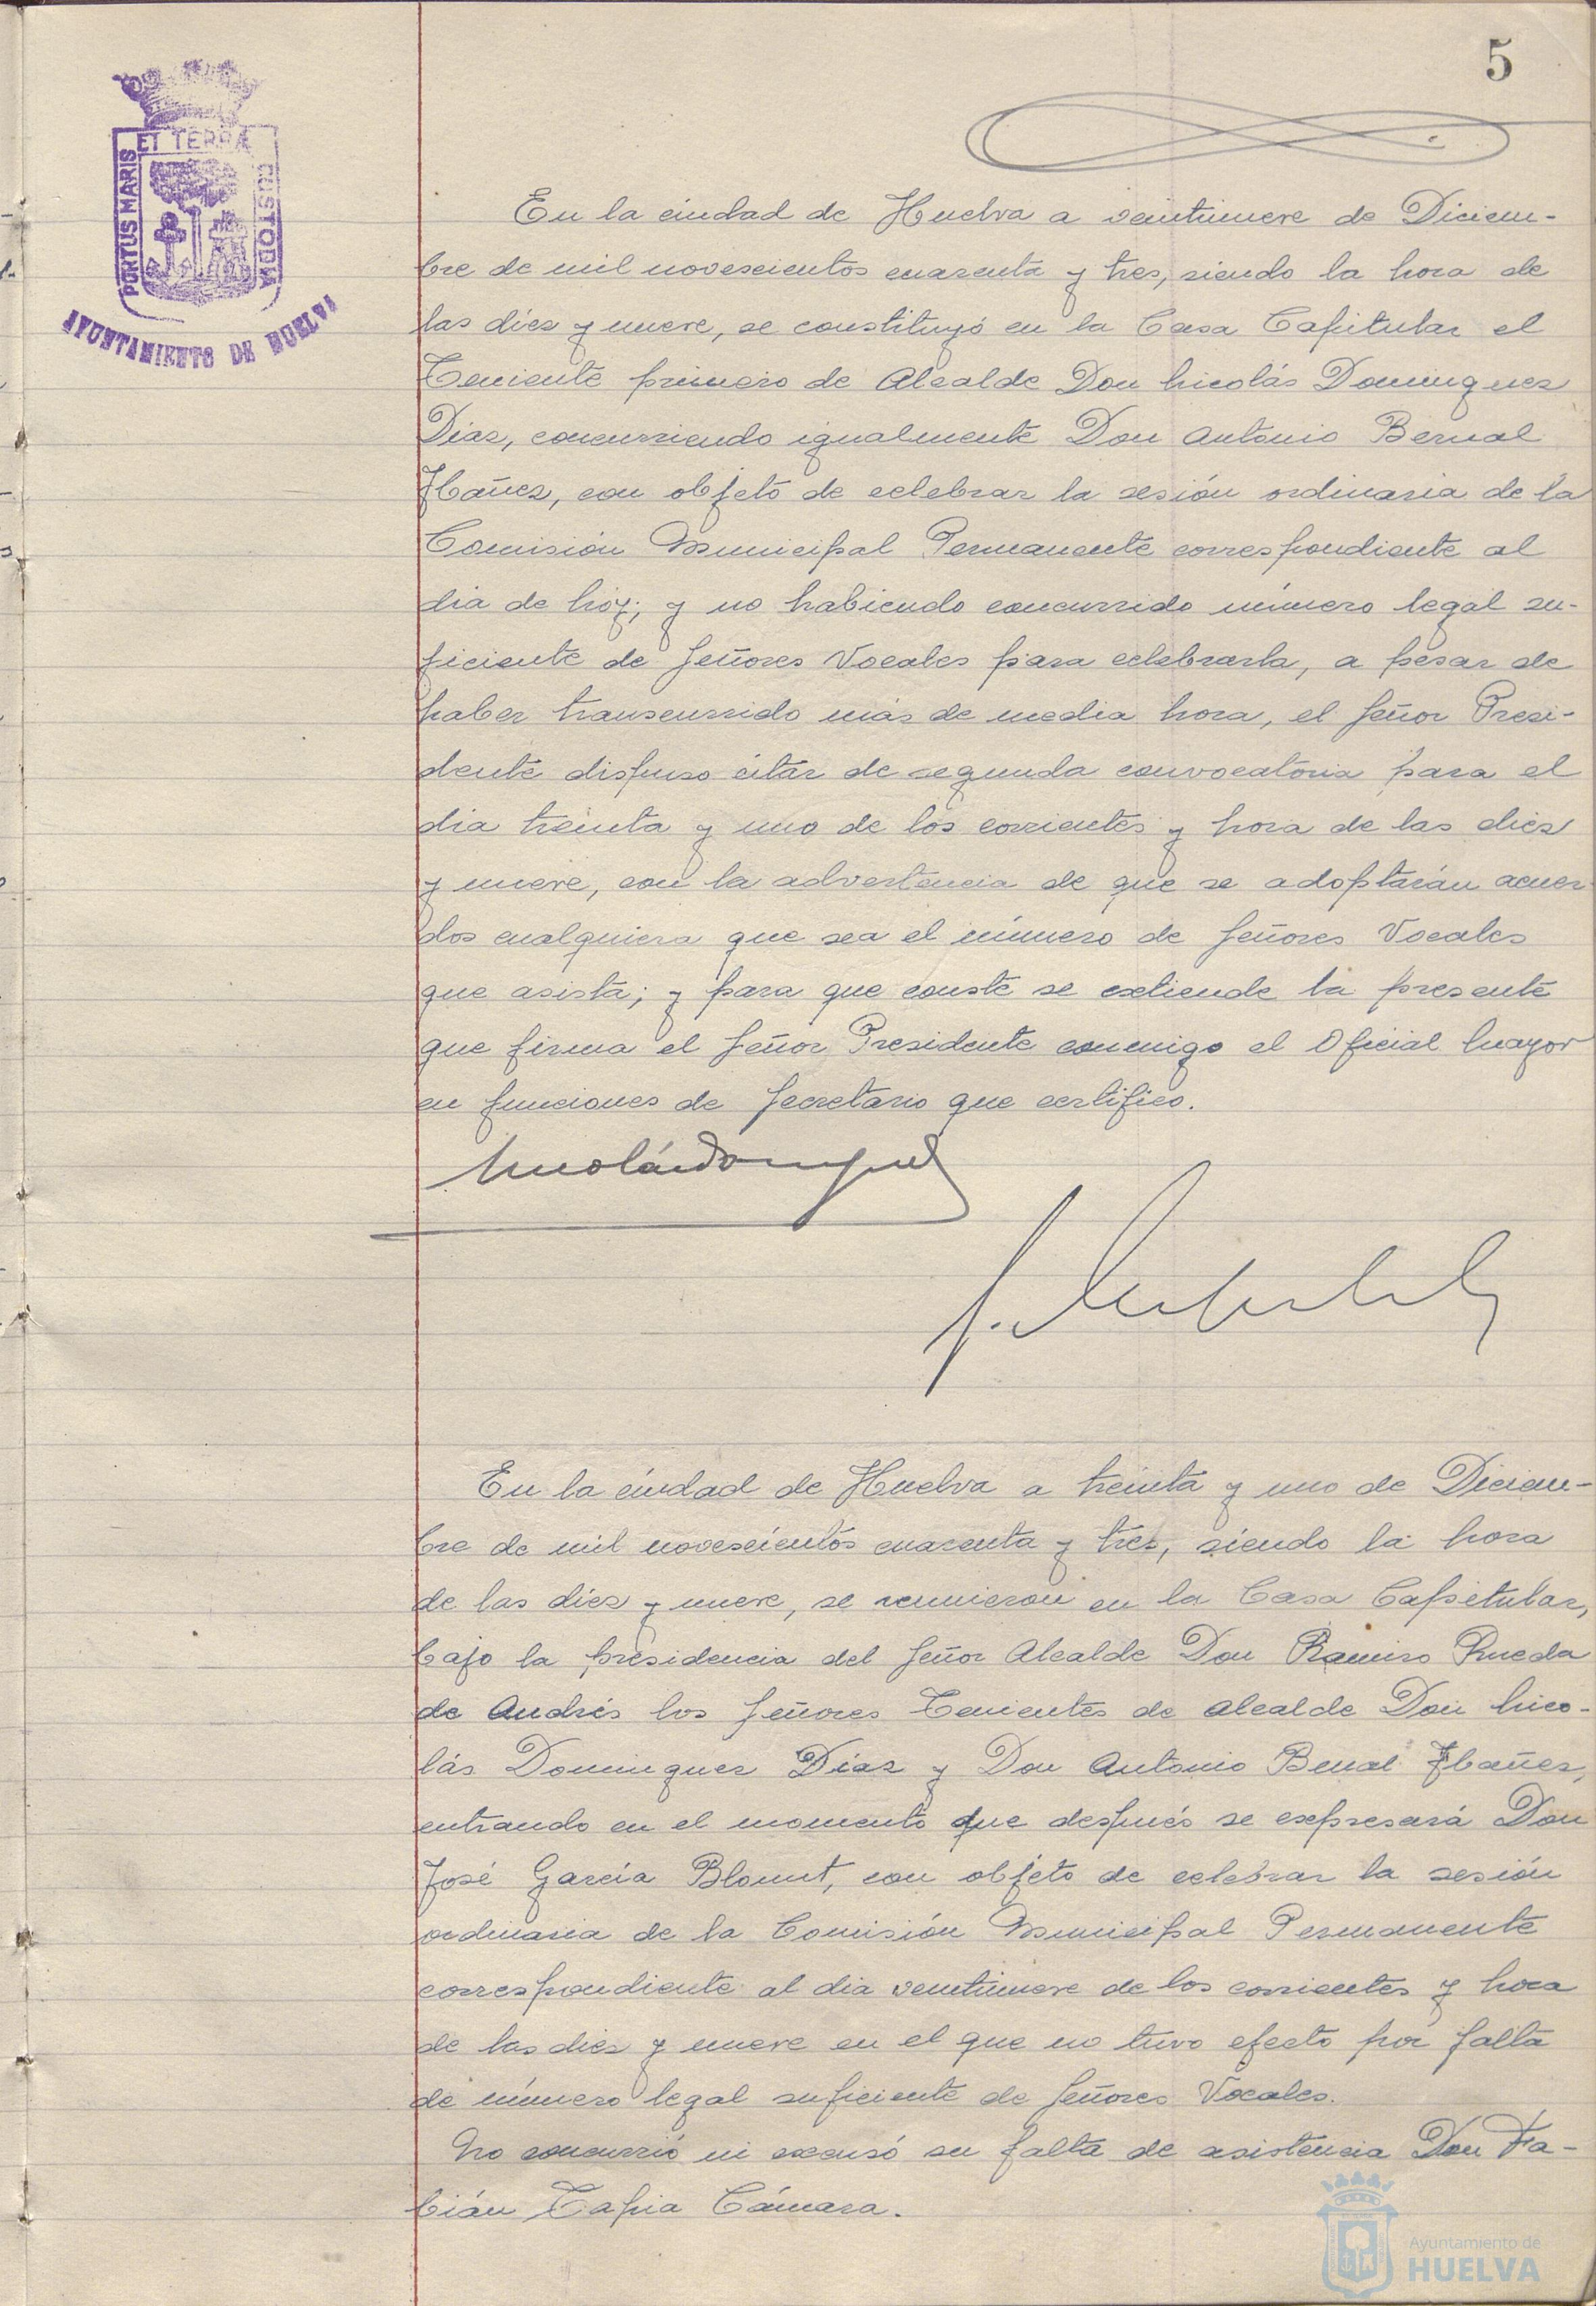 5
PORTUS MARIS ET TERRÆ CUSTODIA
AYUNTAMIENTO DE HUELVA
En la ciudad de Huelva a veintinueve de Diciem-
bre de mil novescientos cuarenta y tres, siendo la hora de
las diez y nueve, se constituyó en la Casa Capitular el
Teniente primero de Alcalde Don Nicolás Dominguez
Diaz, concurriendo igualmente Don Antonio Bernal
Ibañez, con objeto de celebrar la sesión ordinaria de la
Comisión Municipal Permanente correspondiente al
dia de hoy; y no habiendo concurrido número legal su-
ficiente de Señores Vocales para celebrarla, a pesar de
haber transcurrido más de media hora, el Señor Presi-
dente dispuso citar de segunda convocatoria para el
dia treinta y uno de los corrientes y hora de las diez
y nueve, con la advertencia de que se adoptarán acuer
dos cualquiera que sea el número de Señores Vocales
que asista; y para que conste se extiende la presente
que firma el Señor Presidente conmigo el Oficial Mayor
en funciones de Secretario que certifico.
Nicolás Dominguez
En la ciudad de Huelva a treinta y uno de Diciem-
bre de mil novescientos cuarenta y tres, siendo la hora
de las diez y nueve, se reunieron en la Casa Capitular,
bajo la presidencia del Señor Alcalde Don Ramiro Rueda
de Andrés los Señores Tenientes de Alcalde Don Nico-
lás Dominguez Díaz y Don Antonio Bernal Ibañez,
entrando en el momento que después se expresará Don
José García Blount, con objeto de celebrar la sesión
ordinaria de la Comisión Municipal Permanente
correspondiente al dia veintinueve de los corrientes y hora
de las diez y nueve en el que no tuvo efecto por falta
de número legal suficiente de Señores Vocales.
No concurrió ni excusó su falta de asistencia Don Fa-
bián Tapia Cámara.
Ayuntamiento de
HUELVA